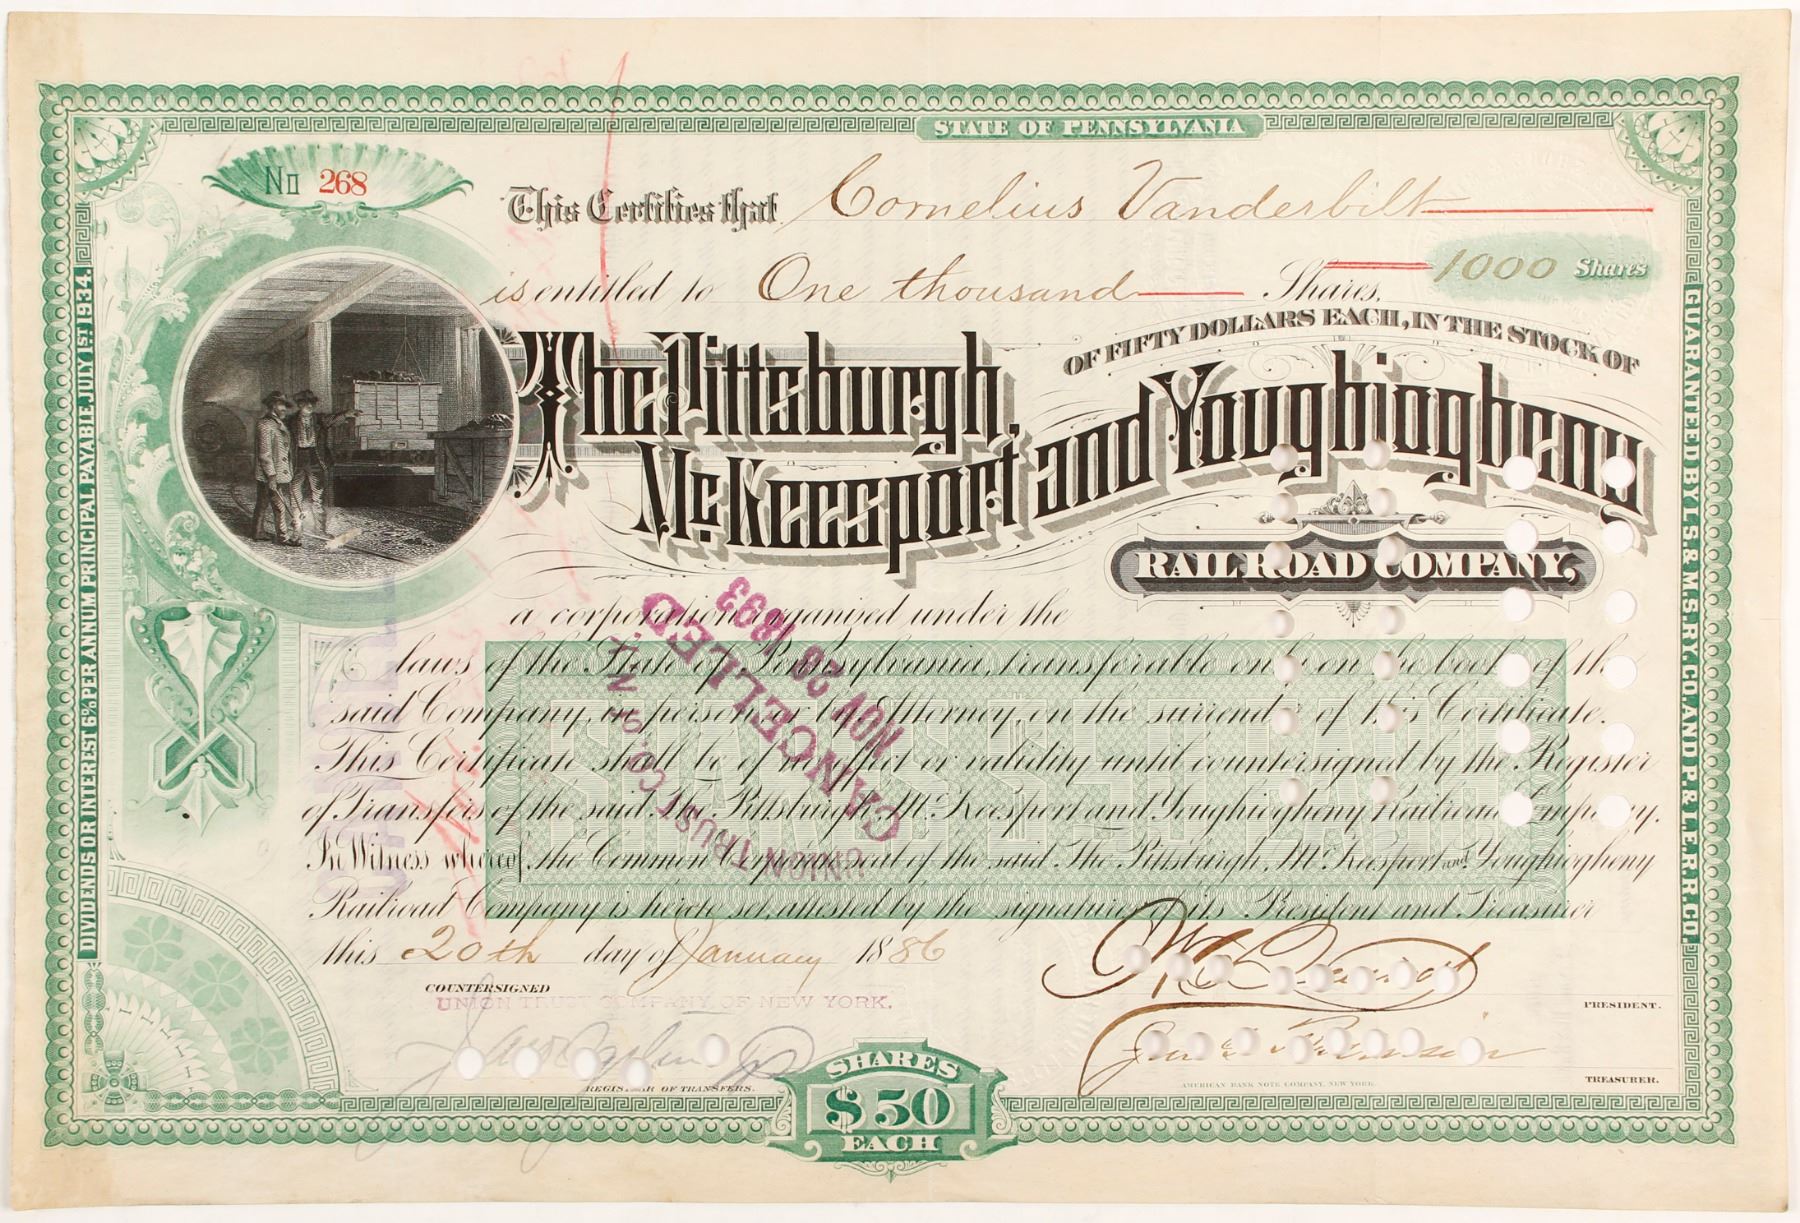 STATE OF PENNSYLVANIA
No 268
This Certifies that Cornelius Vanderbilt
1000 Shares
is entitled to One thousand Shares,
OF FIFTY DOLLARS EACH, IN THE STOCK OF
The Pittsburgh, McKeesport and Youghiogheny
RAILROAD COMPANY,
a corporation organized under the
laws of the State of Pennsylvania, transferable only on the books of the
said Company, in person or by Attorney on the surrender of this Certificate.
This Certificate shall be of no effect or validity until countersigned by the Register
of Transfers of the said The Pittsburgh, McKeesport and Youghiogheny Railroad Company.
In Witness whereof, the Common Corporate Seal of the said The Pittsburgh, McKeesport and Youghiogheny
Railroad Company is hereto set, attested by the signatures of its President and Treasurer
this 20th day of January 1886
COUNTERSIGNED
UNION TRUST COMPANY OF NEW YORK.
PRESIDENT.
REGISTRAR OF TRANSFERS.
AMERICAN BANK NOTE COMPANY, NEW YORK.
TREASURER.
SHARES
$50
EACH
DIVIDENDS OR INTEREST 6% PER ANNUM PRINCIPAL PAYABLE, JULY 1ST 1934.
GUARANTEED BY L.S. & M.S. RY. CO. AND P. & L.E. R.R. CO.
UNION TRUST CO. OF N.Y.
CANCELLED
NOV 28 1893